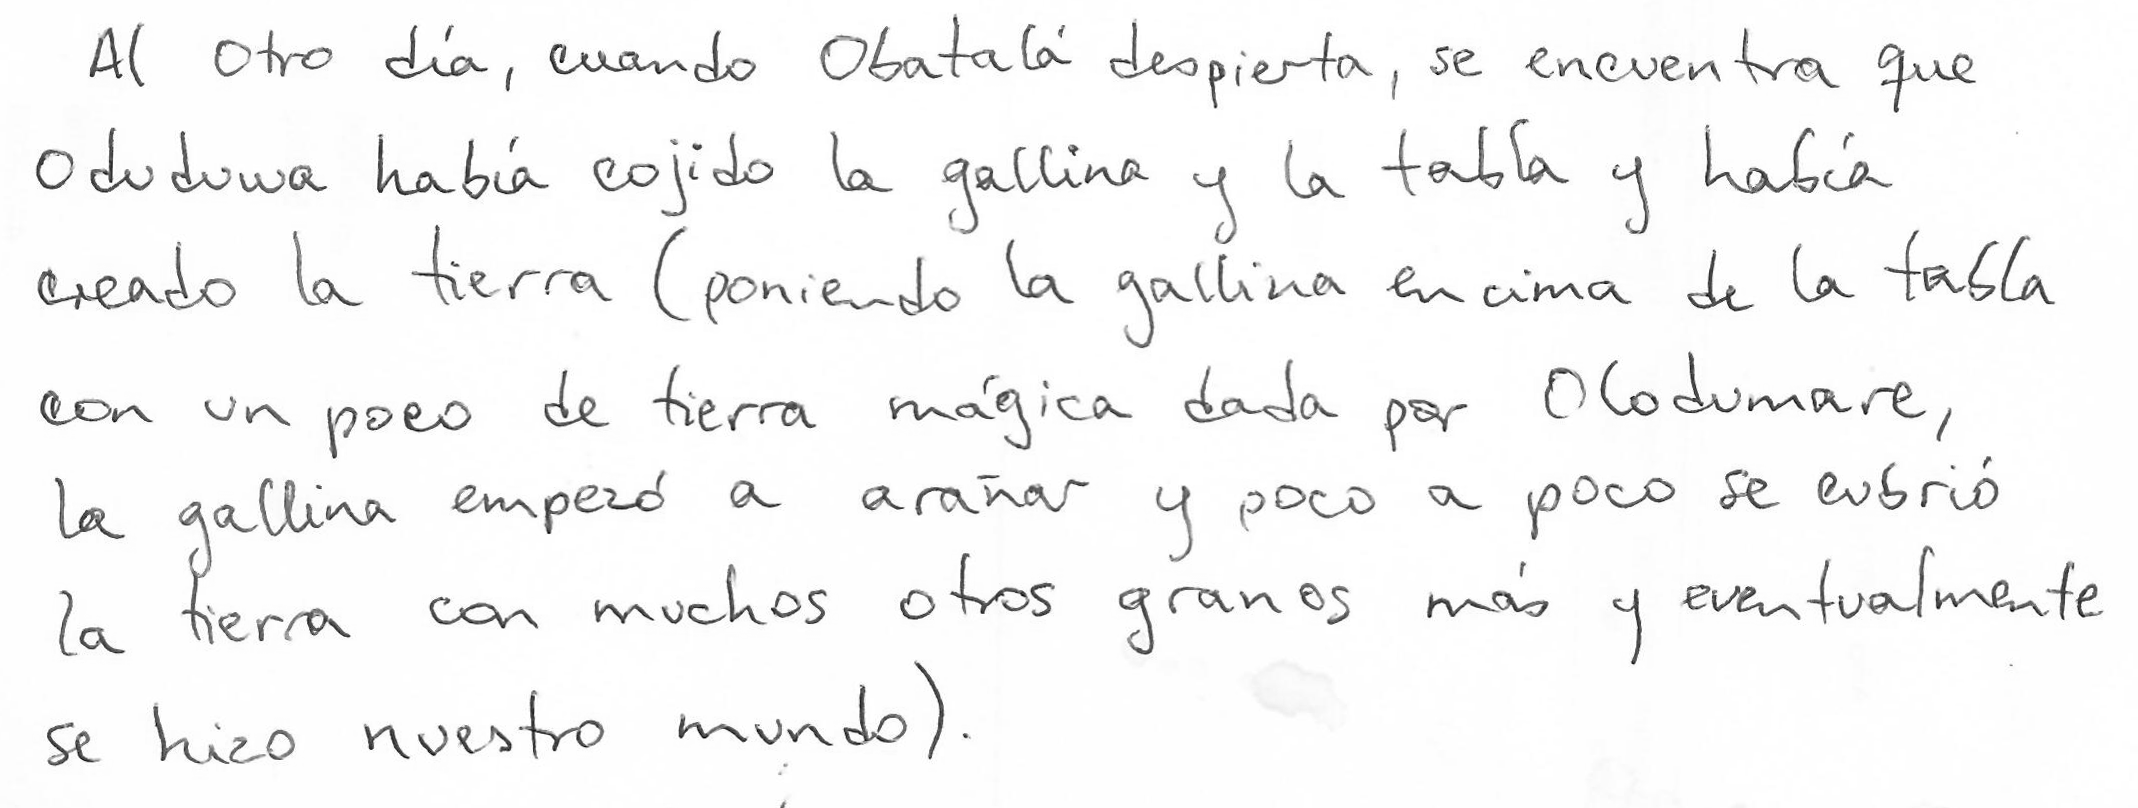 Al otro día, cuando Obatalá despierta, se encuentra que
Oduduwa había cojido la gallina y la tabla y había
creado la tierra (poniendo la gallina encima de la tabla
con un poco de tierra mágica dada por Olodumare,
la gallina empezó a arañar y poco a poco se cubrió
la tierra con muchos otros granos más y eventualmente
se hizo nuestro mundo).